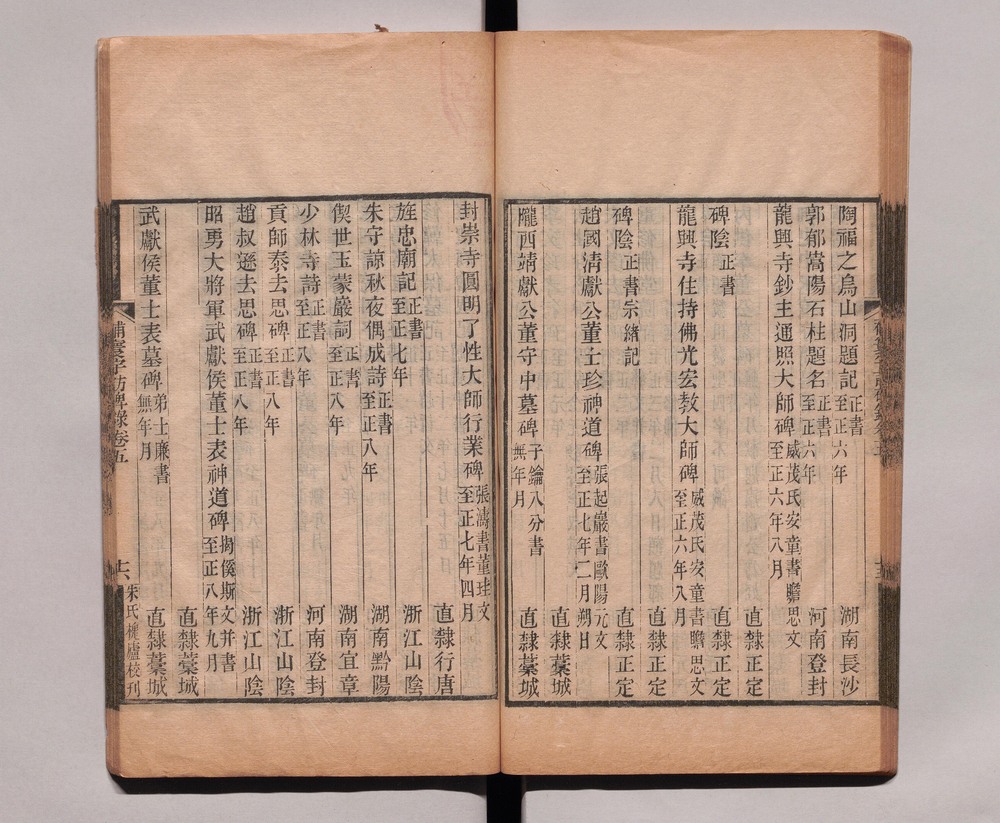 陶福之烏山洞題記正書至正六年 湖南長沙
郭郁嵩陽石柱題名正書至正六年 河南登封
龍興寺鈔主通照大師碑威茂氏安童書瞻思文至正六年八月
直隸正定
碑陰正書 直隸正定
龍興寺住持佛光宏教大師碑威茂氏安童書瞻思文至正六年八月
直隸正定
碑陰正書宗緒記 直隸正定
趙國清獻公董士珍神道碑張起巖書歐陽元文至正七年二月朔日
直隸藁城
隴西靖獻公董守中墓碑子鑰八分書無年月 直隸藁城
封崇寺圓明了性大師行業碑張濤書董珪文至正七年四月
直隸行唐
旌忠廟記正書至正七年 浙江山陰
朱守諒秋夜偶成詩正書至正八年 湖南黔陽
偰世玉蒙巖詞正書至正八年 湖南宜章
少林寺詩正書至正八年 河南登封
貢師泰去思碑正書至正八年 浙江山陰
趙叔遜去思碑正書至正八年 浙江山陰
昭勇大將軍武獻侯董士表神道碑揭傒斯文并書至正八年九月
直隸藁城
武獻侯董士表墓碑弟士廉書無年月 直隸藁城
補寰宇訪碑錄卷五 十六 朱氏槐廬校刊